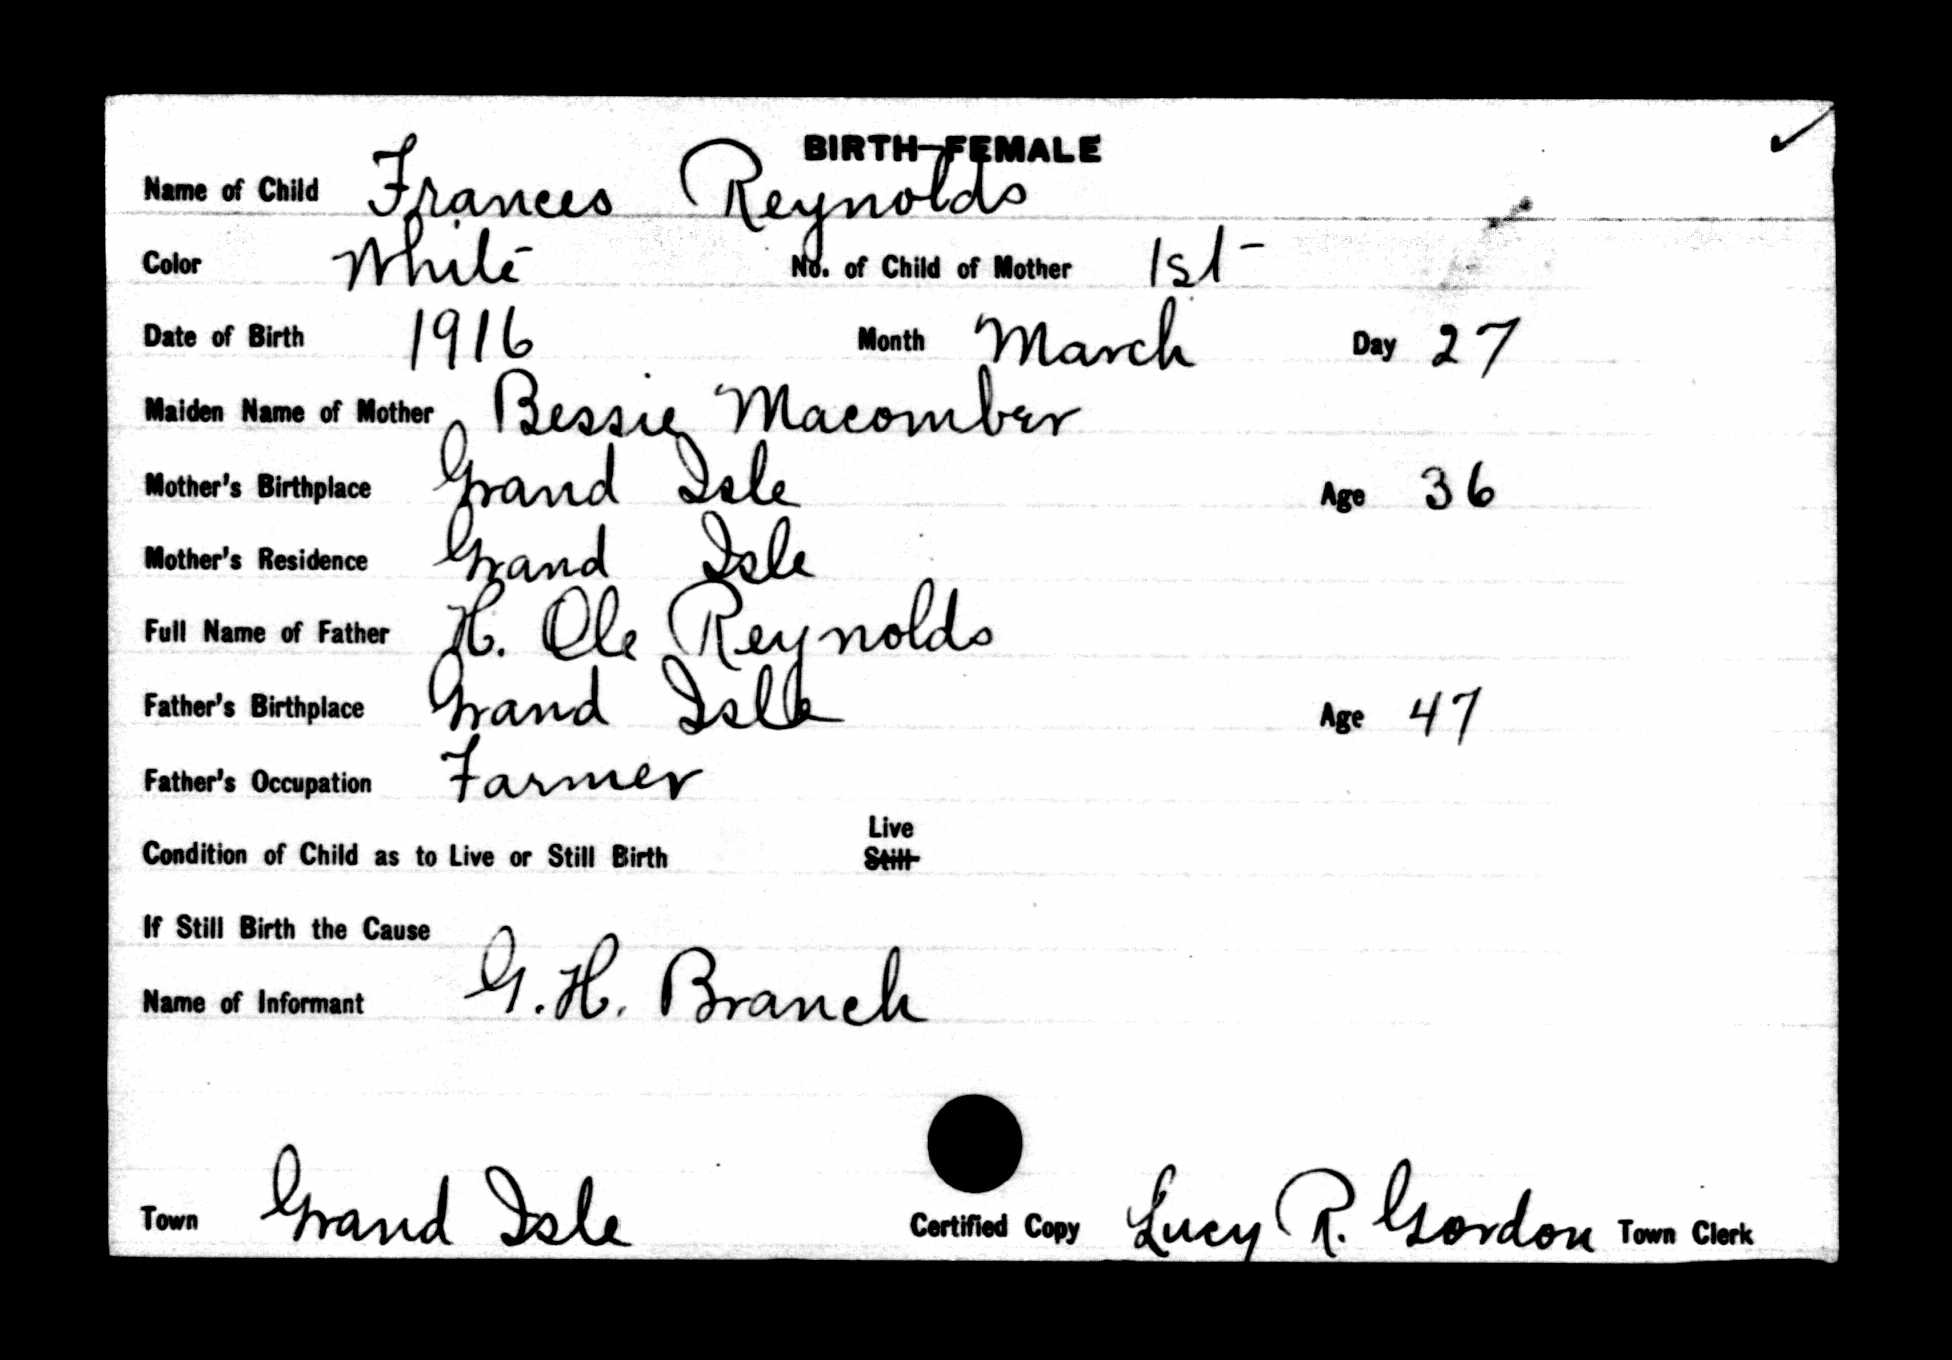 BIRTH—FEMALE
Name of Child Frances Reynolds
Color White No. of Child of Mother 1st
Date of Birth 1916 Month March Day 27
Maiden Name of Mother Bessie Macomber
Mother's Birthplace Grand Isle Age 36
Mother's Residence Grand Isle
Full Name of Father H. Ole Reynolds
Father's Birthplace Grand Isle Age 47
Father's Occupation Farmer
Live
Condition of Child as to Live or Still Birth Still
If Still Birth the Cause
Name of Informant G. H. Branch
Town Grand Isle Certified Copy Lucy R. Gordon Town Clerk